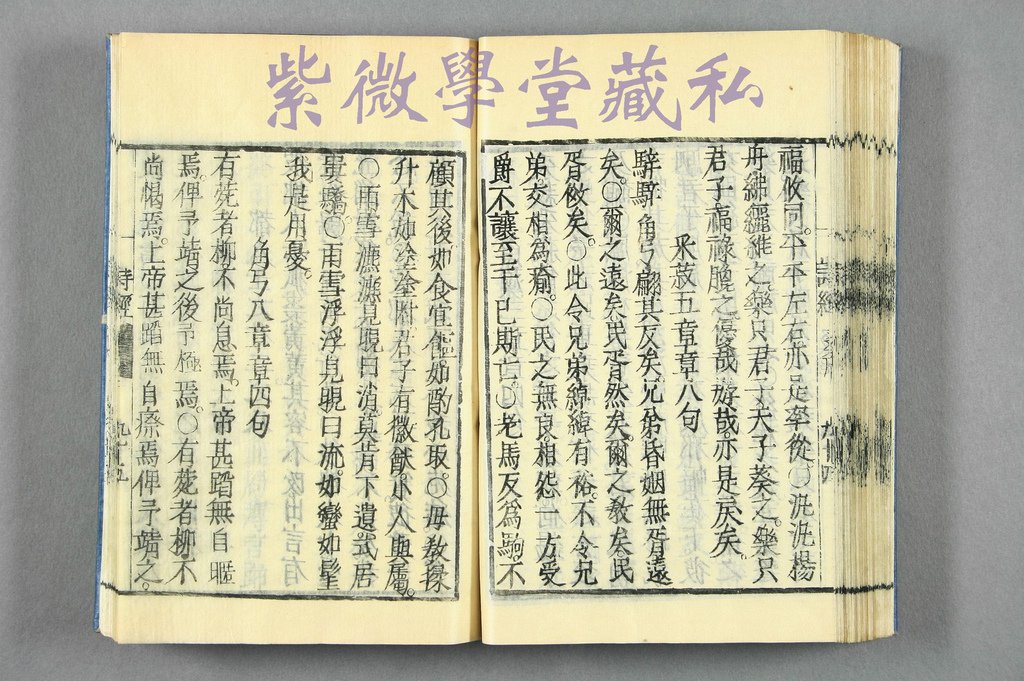 紫微學堂藏私
福攸同。平平左右亦是率從。〇汎汎楊
舟紼纚維之。樂只君子天子葵之。樂只
君子福祿膍之。優哉游哉。亦是戾矣。
采菽五章章八句
騂騂角弓。翩其反矣。兄弟昏姻無胥遠
矣。〇爾之遠矣民胥然矣。爾之教矣民
胥傚矣。〇此令兄弟綽綽有裕。不令兄
弟。交相為瘉。〇民之無良。相怨一方。受
爵不讓。至于已斯亡。〇老馬反為駒。不
詩經
顧其後如食宜饇。如酌孔取。〇毋教猱
升木如塗塗附。君子有徽猷。小人與屬。
〇雨雪瀌瀌見晛曰消。莫肯下遺。式居
婁驕。〇雨雪浮浮見晛曰流。如蠻如髦
我是用憂。
角弓八章章四句
有菀者柳。不尚息焉。上帝甚蹈無自暱
焉。俾予靖之後予極焉。〇有菀者柳。不
尚愒焉。上帝甚蹈無自瘵焉俾予靖之。
詩經